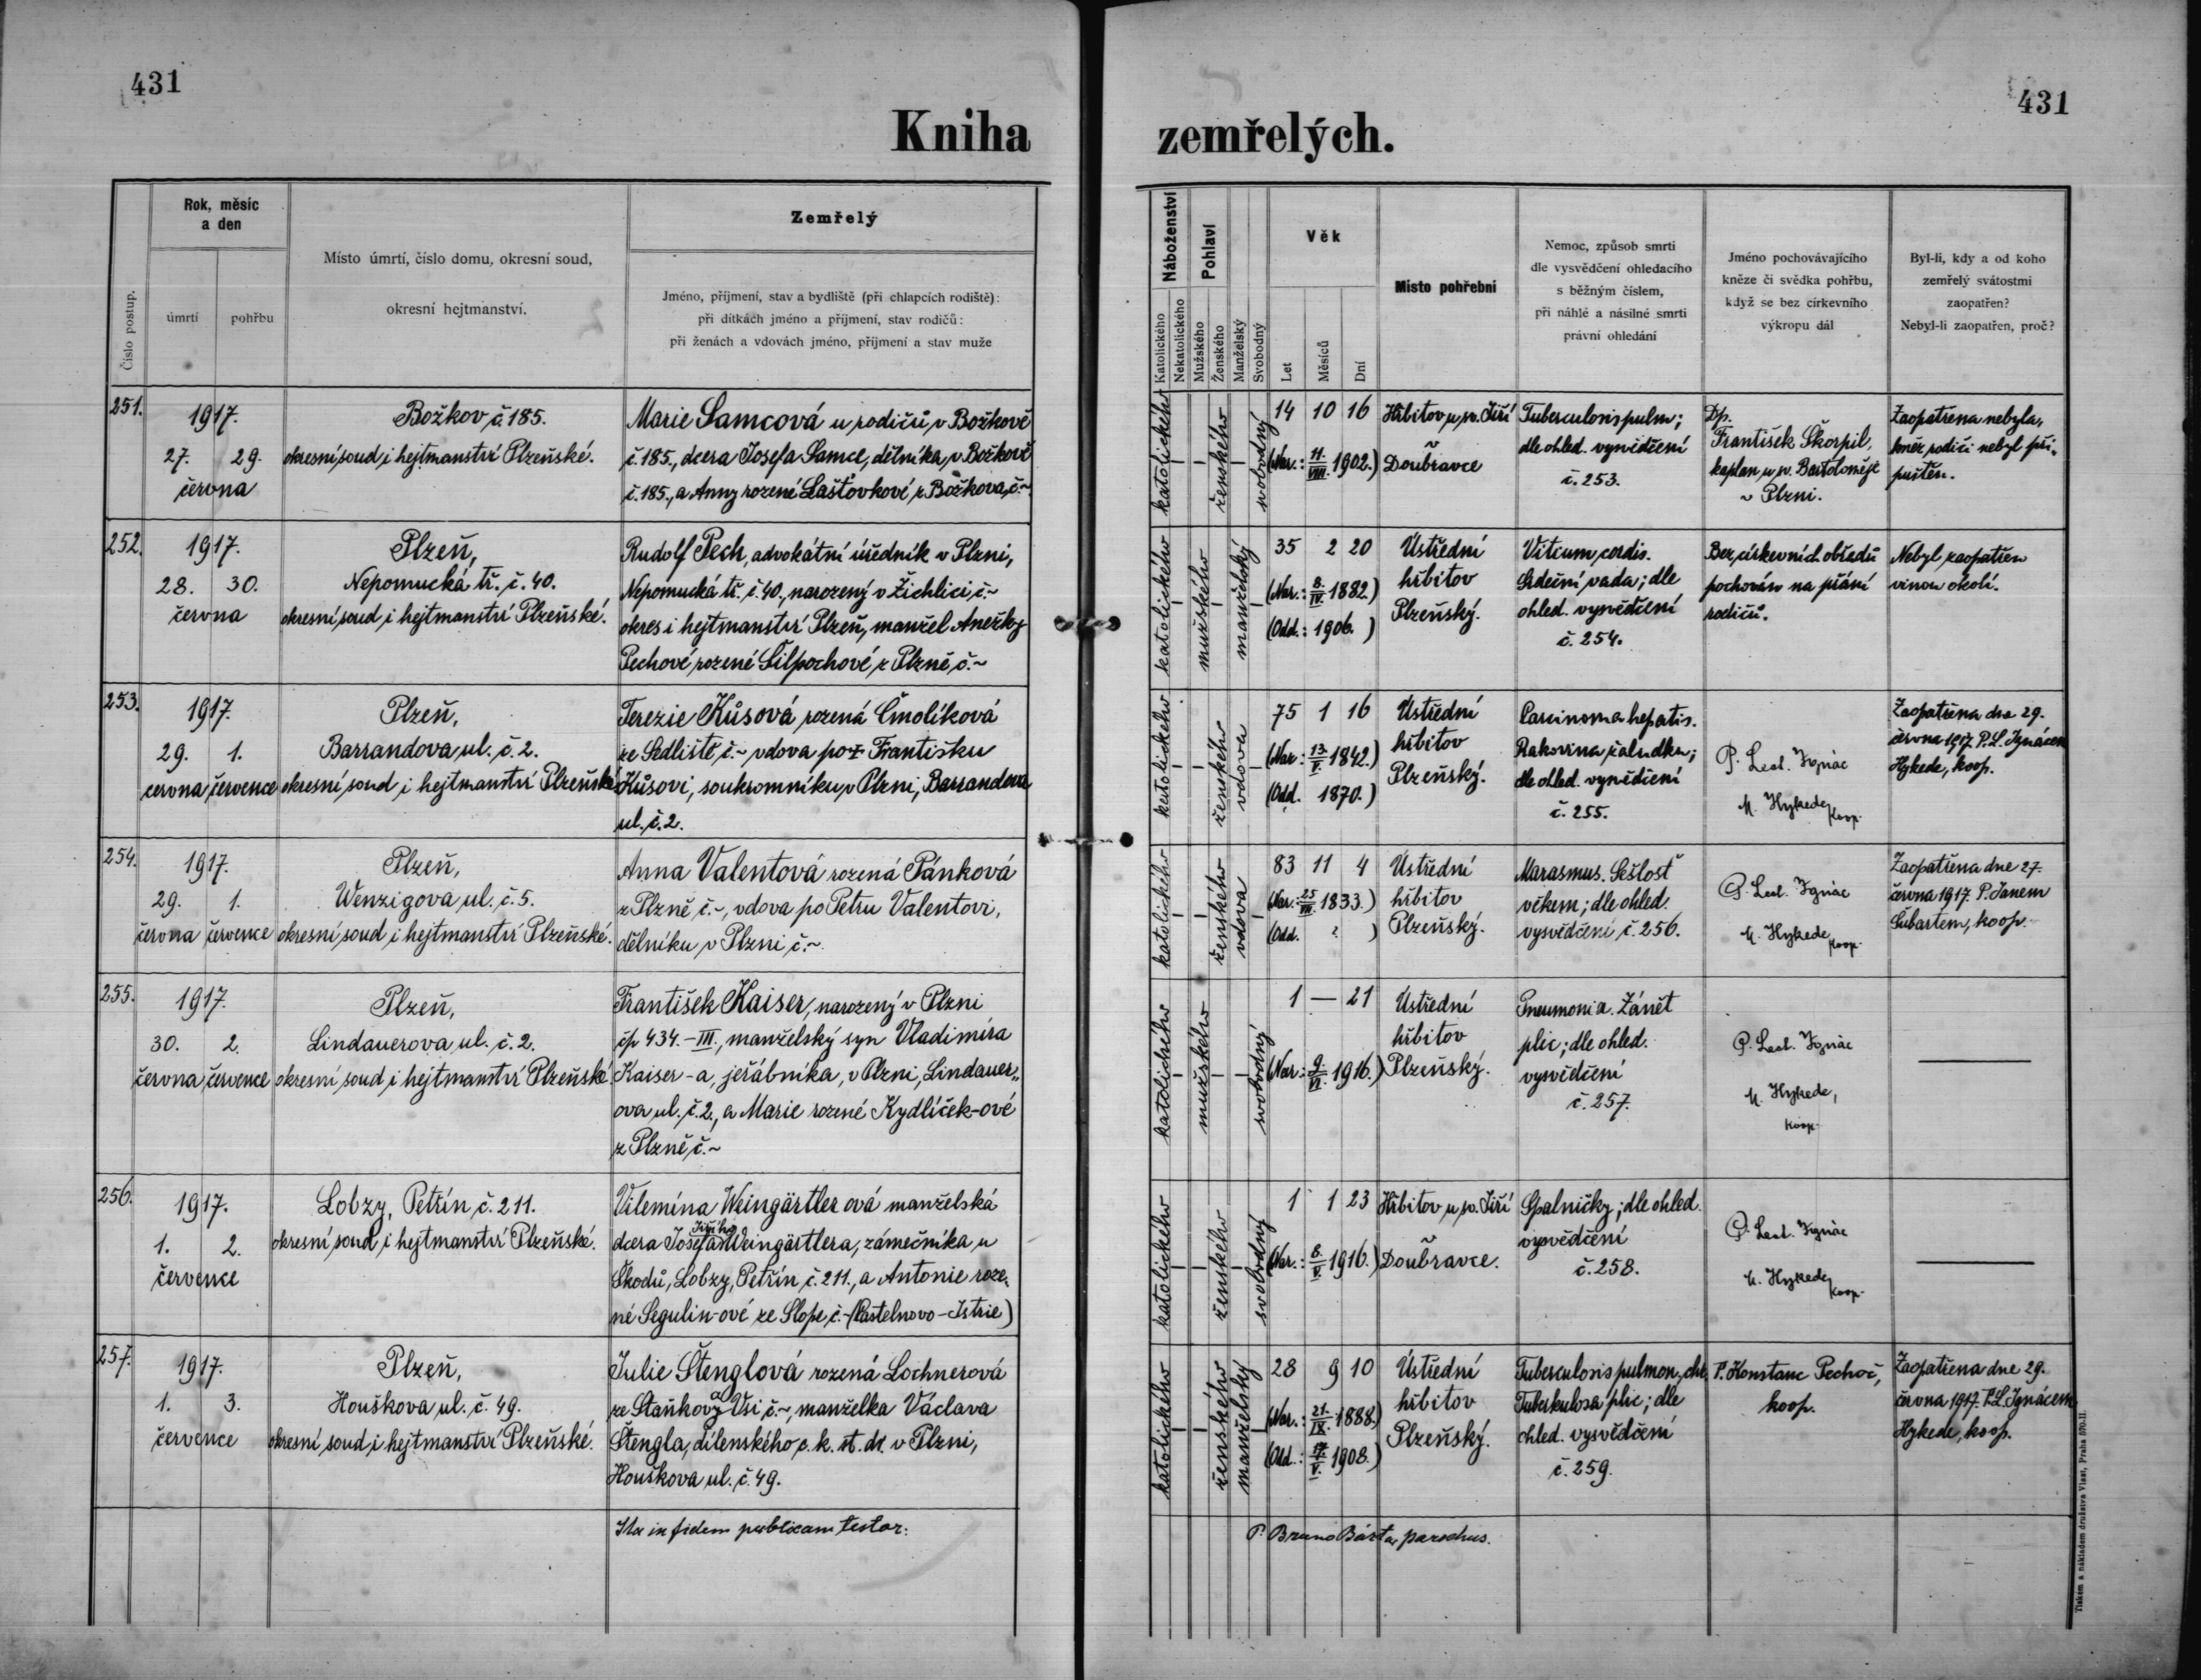 431
431
Kniha zemřelých.
Číslo postup.
Rok, měsíc
a den
úmrtí
pohřbu
Místo úmrtí, číslo domu, okresní soud,
okresní hejtmanství.
Zemřelý
Jméno, příjmení, stav a bydliště (při chlapcích rodiště):
při dítkách jméno a příjmení, stav rodičů:
při ženách a vdovách jméno, příjmení a stav muže
Náboženství
Katolického
Nekatolického
Pohlaví
Mužského
Ženského
Manželský
Svobodný
Věk
Let
Měsíců
Dní
Místo pohřební
Nemoc, způsob smrti
dle vysvědčení ohledacího
s běžným číslem,
při náhlé a násilné smrti
právní ohledání
Jméno pochovávajícího
kněze či svědka pohřbu,
když se bez církevního
výkropu dál
Byl-li, kdy a od koho
zemřelý svátostmi
zaopatřen?
Nebyl-li zaopatřen, proč?
251.
1917.
27. 29.
června
Božkov č. 185.
okresní soud i hejtmanství Plzeňské.
Marie Samcová u rodičů v Božkově
č. 185., dcera Josefa Samce, dělníka v Božkově
č. 185., a Anny rozené Lašťovkové z Božkova, č. ~
katolického
ženského
svobodný
14 10 16
(Nar.: 11./VIII. 1902.)
Hřbitov u sv. Jiří
Doubravce
Tuberculosis pulm;
dle ohled. vysvědčení
č. 253.
Dp.
František Škorpil,
kaplan u sv. Bartoloměje
v Plzni.
Zaopatřena nebyla,
kněz rodiči nebyl při„
puštěn.
252.
1917.
28. 30.
června
Plzeň,
Nepomucká tř. č. 40.
okresní soud i hejtmanství Plzeňské.
Rudolf Pech, advokátní úředník v Plzni,
Nepomucká tř. č. 40., narozený v Žichlici, č. ~
okres i hejtmanství Plzeň, manžel Anežky
Pechové rozené Silpochové z Plzně č. ~
katolického
mužského
manželský
35 2 20
(Nar.: 8./IV. 1882.)
(Odd.: 1906. )
Ústřední
hřbitov
Plzeňský.
Vitium cordis.
Srdeční vada; dle
ohled. vysvědčení
č. 254.
Bez církevních obřadů
pochován na přání
rodičů.
Nebyl zaopatřen
vinou okolí.
253.
1917.
29. 1.
června července
Plzeň,
Barrandova ul. č. 2.
okresní soud i hejtmanství Plzeňské
Terezie Kůsová rozená Čmolíková
ze Sedliště č. ~ vdova po Františku
Kůsovi, soukromníku v Plzni, Barrandova
ul. č. 2.
katolického
ženského
vdova
75 1 16
(Nar.: 13./V. 1842.)
(Odd. 1870.)
Ústřední
hřbitov
Plzeňský.
Carcinoma hepatis.
Rakovina žaludku;
dle ohled. vysvědčení
č. 255.
P. Leal. Ignác
M. Hykede,
koop.
Zaopatřena dne 29.
června 1917. P. L. Ignácem
Hykede, koop.
254.
1917.
29. 1.
června července
Plzeň,
Wenzigova ul. č. 5.
okresní soud i hejtmanství Plzeňské.
Anna Valentová rozená Pánková
z Plzně č. ~, vdova po Petru Valentovi,
dělníku v Plzni č. ~
katolického
ženského
vdova
83 11 4
(Nar.: 25./VII. 1833.)
(Odd. ? )
Ústřední
hřbitov
Plzeňský.
Marasmus. Sešlosť
věkem; dle ohled.
vysvědčení č. 256.
P. Leal. Ignác
M. Hykede,
koop.
Zaopatřena dne 27.
června 1917. P. Janem
Šubartem, koop.
255.
1917.
30. 2.
června července
Plzeň,
Lindauerova ul. č. 2.
okresní soud i hejtmanství Plzeňské
František Kaiser, narozený v Plzni
čp 434.-III., manželský syn Vladimíra
Kaiser-a, jeřábníka, v Plzni, Lindauer„
ova ul. č. 2., a Marie rozené Kydlíček-ové
z Plzně, č. ~
katolického
mužského
svobodný
1 — 21
(Nar.: 9./VI. 1916.)
Ústřední
hřbitov
Plzeňský.
Pneumonia. Zánět
plic; dle ohled.
vysvědčení
č. 257.
P. Leal. Ignác
M. Hykede,
koop.
256.
1917.
1. 2.
července
Lobzy, Petřín č. 211.
okresní soud i hejtmanství Plzeňské.
Vilemína Weingärtler ová manželská
Jiřího
dcera Josefa Weingärtlera, zámečníka u
Škodů, Lobzy, Petřín č. 211., a Antonie roze„
né Segulin-ové ze Slope, č. - (Castelnovo - Istrie)
katolického
ženského
svobodný
1 1 23
(Nar.: 8./V. 1916.)
Hřbitov u sv. Jiří
Doubravce.
Spalničky; dle ohled.
vysvědčení
č. 258.
P. Leal. Ignác
M. Hykede,
koop.
257.
1917.
1. 3.
července
Plzeň,
Houškova ul. č. 49.
okresní soud i hejtmanství Plzeňské.
Julie Štenglová rozená Lochnerová
ze Staňkovy Vsi č. ~, manželka Václava
Štengla, dílenského c. k. st. dr. v Plzni,
Houškova ul. č. 49.
katolického
ženského
manželský
28 9 10
(Nar.: 21./IX. 1888.)
(Odd.: 17./V. 1908.)
Ústřední
hřbitov
Plzeňský.
Tuberculosis pulmon. chr.
Tuberkulosa plic; dle
ohled. vysvědčení
č. 259.
P. Konstanc Pechoč,
koop.
Zaopatřena dne 29.
června 1917. P. L. Ignácem
Hykede, koop.
Ita in fidem publicam testor:
P. Bruno Bárta, parochus.
Tiskem a nákladem družstva Vlast, Praha 570.II.